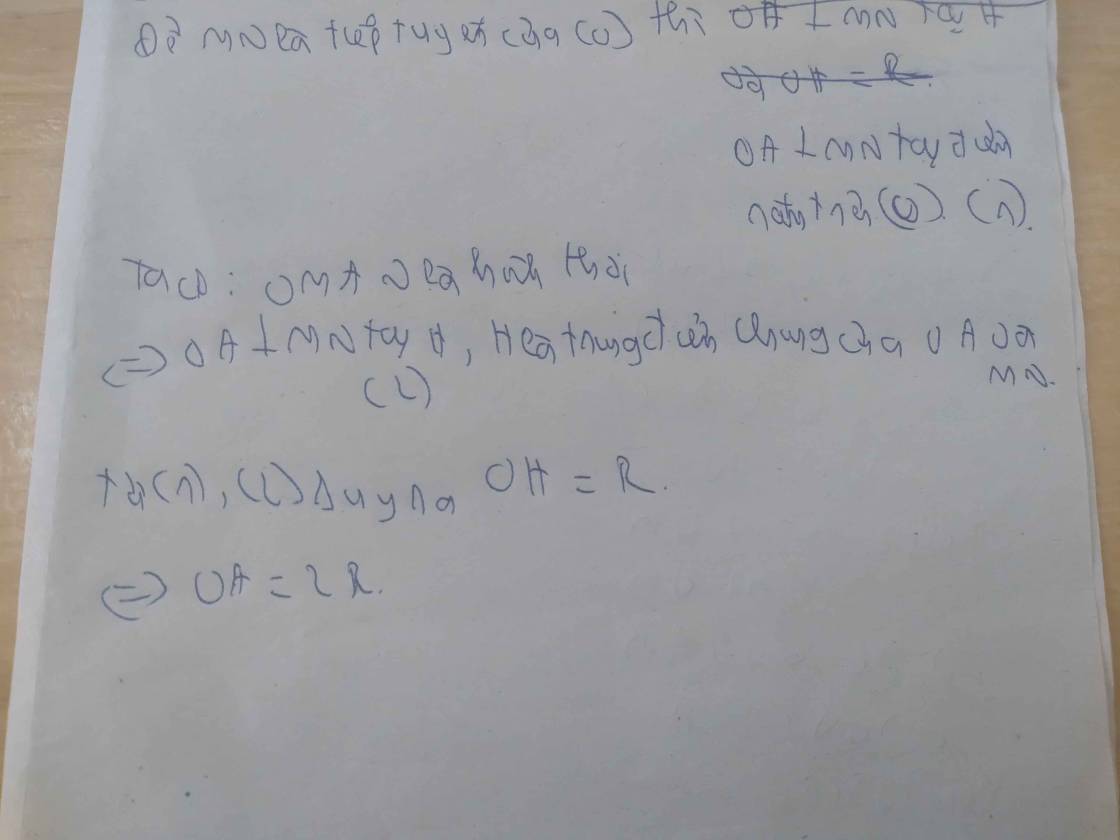 Để MN là tiếp tuyến của (O) thì OH ⊥ MN tại H
và OH = R.
OA ⊥ MN tại điểm
nằm trên (O). (1).
Ta có: OMAN là hình thoi
<=> OA ⊥ MN tại H, H là trung điểm chung của OA và
(2)
MN.
từ (1), (2) suy ra OH = R.
<=> OA = 2R.